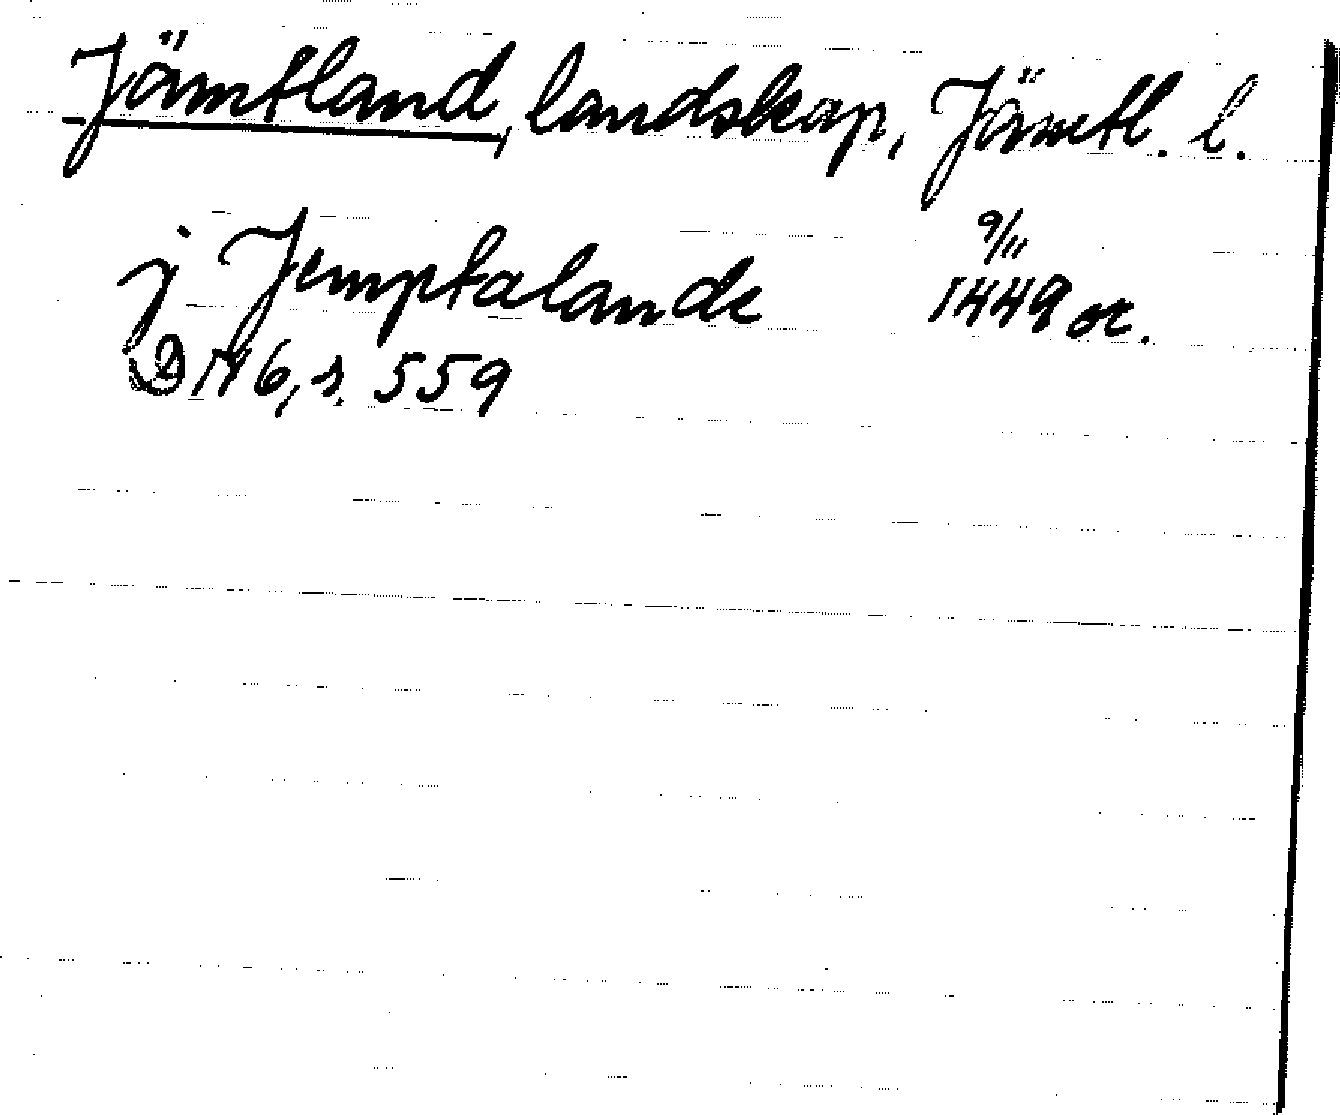 Jämtland, landskap, Jämtl. l.
j Jemptalande 9/11 1449 or.
DN 6, s. 559